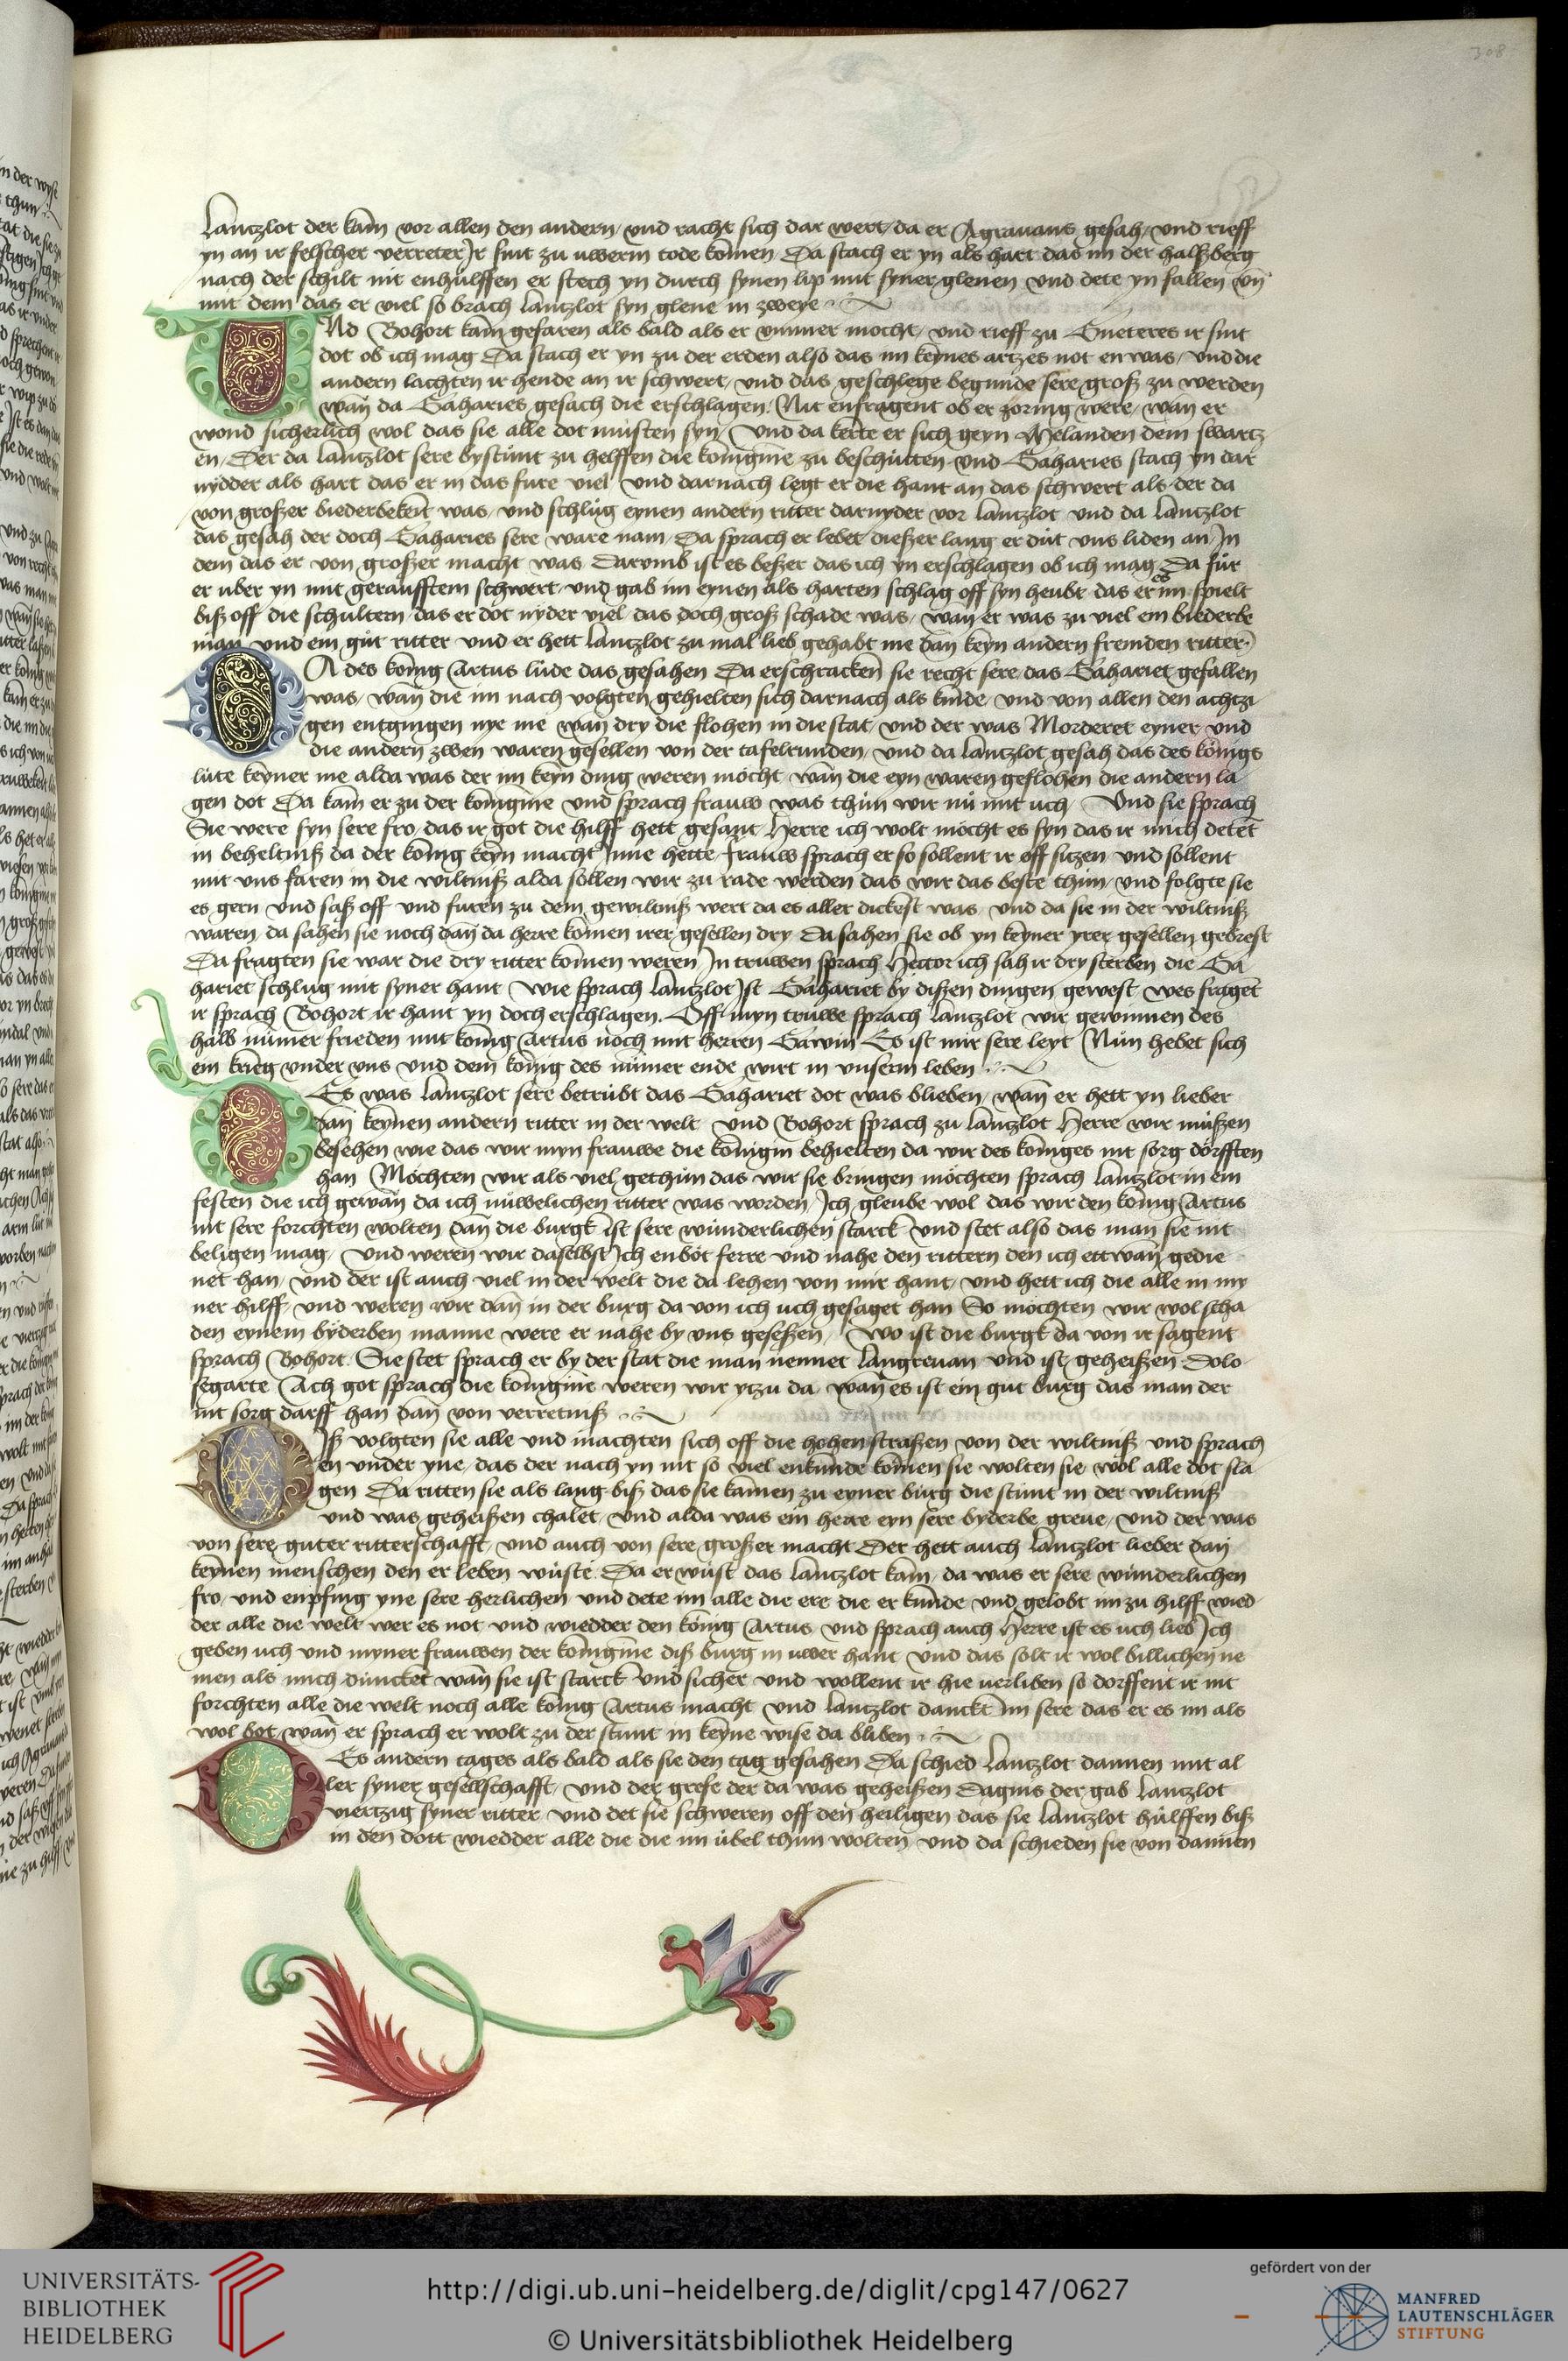 308
Lantzlot der kam vor allen den andern und racht sich dar wert da er Agravans gesah und rieff
yn an ir felscher verreter Ir sint zu uwerm tode komen Da stach er yn als hart das im der halßberg
nach der schilt nit enhulffen er stech yn durch synen lip mit syner glenen und dete yn fallen vn̄
mit dem das er viel so brach lantzlot syn glene in zweye
UNd Bohort kam gefaren als bald als er ymmer mocht und rieff zu Gueteres ir sint
dot ob ich mag Da stach er yn zu der erden also das im keynes artzes not en was und die
andern lachten ir hende an ir schwert und das geschlege begunde sere groß zu werden
wan da Gaharies gesach die erschlagen Nit enfragent ob er zornig were wan er
wond sicherlich wol das sie alle dot musten syn und da kerte er sich geyn Melanden dem swartz
en Der da lantzlot sere bystunt zu helffen die konigine zu beschutten und Gaharies stach yn dar
nydder als hart das er in das fure viel und darnach legt er die hant an das schwert als der da
von großer biederbekeit was und schlug eynen andern ritter darnyder vor lantzlot und da lantzlot
das gesah der doch Gaharies sere ware nam Da sprach er lebet dießer lang er dut uns liden an In
dem das er von großer macht was Darumb ist es beßer das ich yn erschlagen ob ich mag Da fur
er uber yn mit geraufftem schwert und gab im eynen als harten schlag off syn heubt das er es im spielt
biß off die schultern das er dot nyder viel das doch groß schade was wan er was zu viel ein biederbe
man und ein gut ritter und er hett lantzlot zu mal lieb gehabt me dan keyn andern fremden ritter
DA des konig Artus lude das gesahen Da erschracken sie recht sere das Gahariet gefallen
was wan die im nach volgten gehielten sich darnach als kinde und von allen den achtzi
gen entgingen nye me wan dry die flohen in die stat und der was Morderet eyner und
die andern zwen waren gesellen von der tafelrunden und da lantzlot gesah das des konigs
lute keyner me alda was der im keyn ding weren mocht wan die eyn waren geflohen die andern la
gen dot Da kam er zu der konigine und sprach frauw was thun wir nu mit uch Und sie sprach
Sie were syn sere fro das ir got die hilff hett gesant Herre ich wolt mocht es syn das ir mich detet
in beheltniß da der konig keyn macht inne hette frauw sprach er so sollent ir off sitzen und sollent
mit uns faren in die wiltniß alda sollen wir zu rade werden das wir das beste thun und folgte sie
es gern und saß off und furen zu dem gewiltniß wert da es aller dickest was und da sie in der wiltniß
waren da sahen sie noch dan da herre komen irer gesellen dry Da sahen sie ob yn keyner yrer gesellen gebrest
Da fragten sie war die dry ritter komen weren In truwen sprach Hector ich sah ir dry sterben die Ga
hariet schlug mit syner hant Wie sprach lantzlot Ist Gahariet by dißen dingen gewest wes fraget
ir sprach Bohort ir hant yn doch erschlagen Off myn truwe sprach lantzlot wir gewinnen des
halb numer frieden mit konig Artus noch mit herren Gawin Es ist mir sere leyt Nun hebet sich
ein krieg under uns und dem konig des numer ende wirt in unserm leben
DEs was lantzlot sere betrubt das Gahariet dot was blieben wan er hett yn lieber
dan keynen andern ritter in der welt und Bohort sprach zu lantzlot Herre wir mußen
besehen wie das wir myn frauwe die konigin behielten da wir des koniges nit sorg dorfften
han Mochten wir als viel gethun das wir sie bringen mochten sprach lantzlot in ein
festen die ich gewan da ich nuwelichen ritter was worden Ich gleube wol das wir den konig Artus
nit sere forchten wolten dan die burgk ist sere wunderlichen starck und stet also das man sie nit
beligen mag und weren wir daselbst Ich enbot ferre und nahe den rittern den ich ettwan gedie
net han und der ist auch viel in der welt die da lehen von mir hant und hett ich die alle in my
ner hilff und weren wir dan in der burg da von ich uch gesaget han So mochten wir wol scha
den eynem byderben manne were er nahe by uns geseßen Wo ist die burgk da von ir sagent
sprach Bohort Sie stet sprach er by der stat die man nennet langrevan und ist geheißen Dolo
segarte Ach got sprach die konigine weren wir ytzu da wan es ist ein gut burg das man der
nit sorg darff han dan von verretniß
DIß volgten sie alle und machten sich off die hohen straßen von der wiltniß und sprach
en under yne das der nach yn nit so viel enkunde komen sie wolten sie wol alle dot sla
gen Da ritten sie als lang biß das sie kamen zu eyner burg die stunt in der wiltniß
und was geheißen chalet und alda was ein herre eyn sere byderbe greve und der was
von sere guter ritterschafft und auch von sere großer macht Der hett auch lantzlot lieber dan
keynen menschen den er leben wuste Da er wust das lantzlot kam da was er sere wunderlichen
fro und enpfing yne sere herlichen und dete im alle die ere die er kunde und gelobt im zu hilff wied
der alle die welt wer es not und wiedder den konig Artus und sprach auch Herre ist es uch lieb Ich
geben uch und myner frauwen der konigine diß burg in uwer hant und das solt ir wol billichen ne
men als mich duncket wan sie ist starck und sicher und wollent ir hie verliben so dorffent ir nit
forchten alle die welt noch alle konig Artus macht und lantzlot danckt im sere das er es im als
wol bot wan er sprach er wolt zu der stunt in keyne wise da bliben
DEs andern tages als bald als sie den tag gesahen Da schied lantzlot dannen mit al
ler syner gesellschafft und der grefe der da was geheißen Dagins der gab lantzlot
viertzig syner ritter und det sie schweren off den heiligen das sie lantzlot hulffen biß
in den dott wiedder alle die die im ubel thun wolten und da schieden sie von dannen
UNIVERSITÄTS-
BIBLIOTHEK
HEIDELBERG
http://digi.ub.uni-heidelberg.de/diglit/cpg147/0627
© Universitätsbibliothek Heidelberg
gefördert von der
MANFRED
LAUTENSCHLÄGER
STIFTUNG